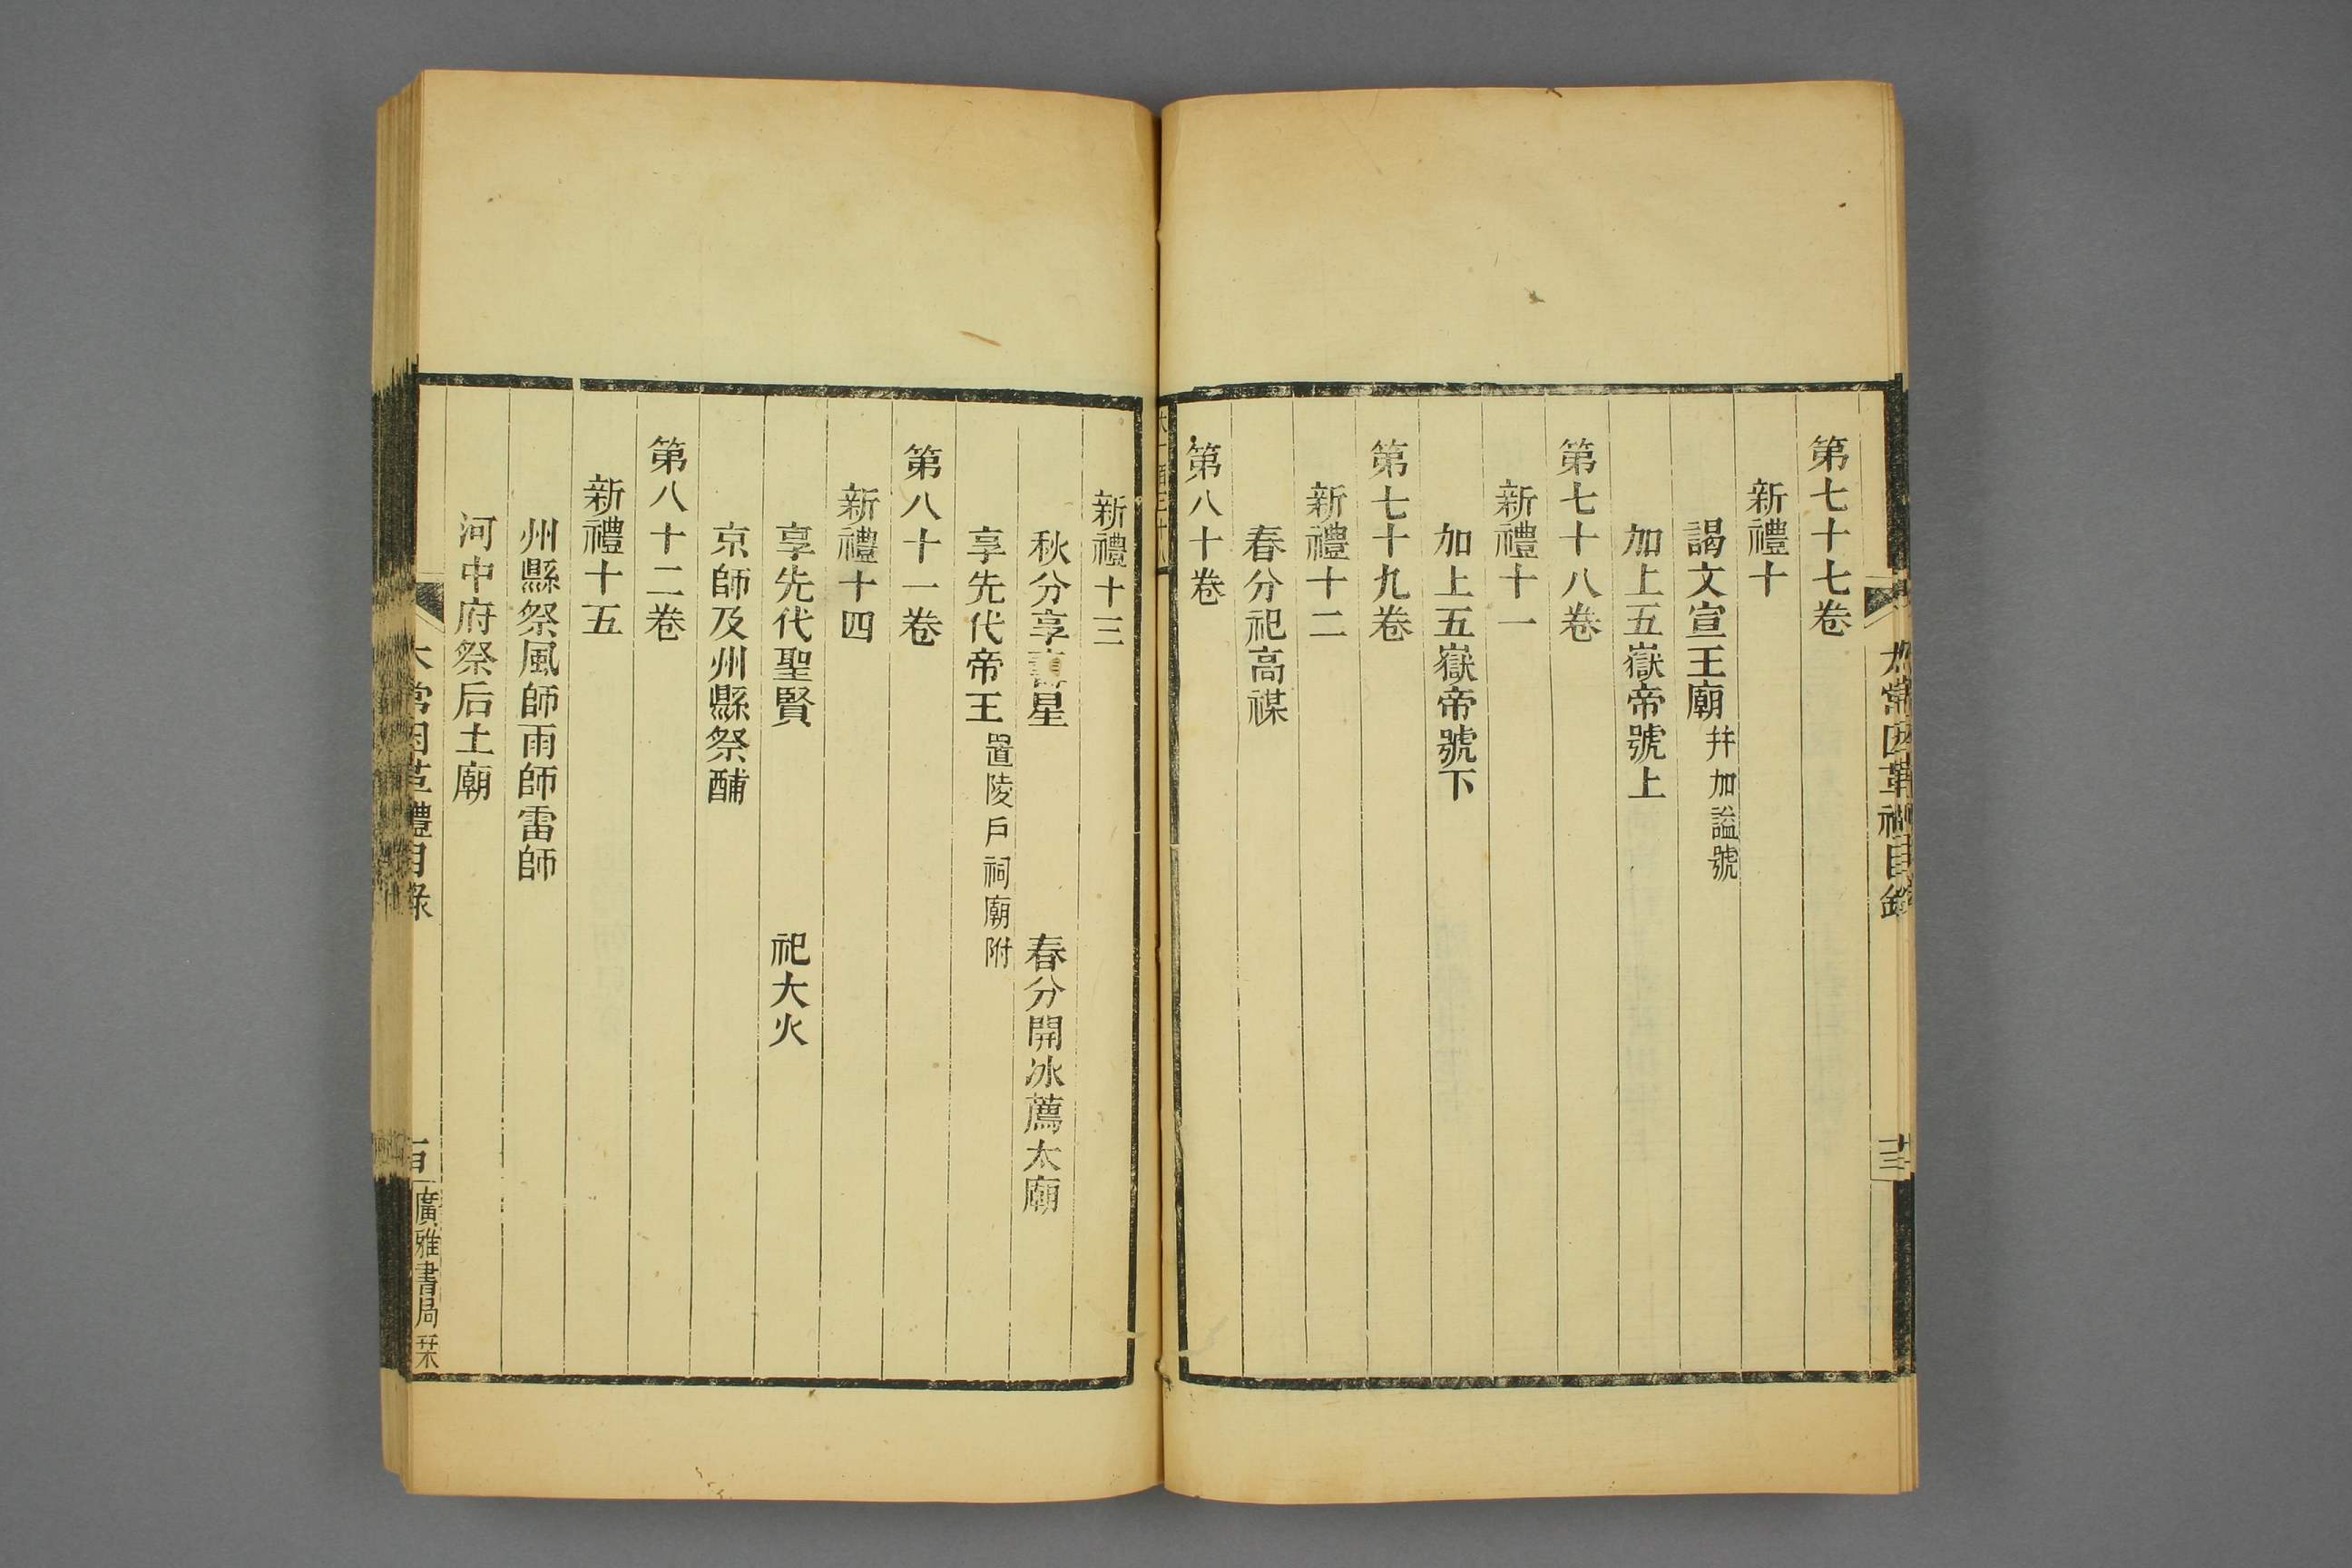 第七十七卷
新禮十
謁文宣王廟 幷加謚號
加上五嶽帝號上
第七十八卷
新禮十一
加上五嶽帝號下
第七十九卷
新禮十二
春分祀高禖
第八十卷
新禮十三
秋分享壽星 春分開冰薦太廟
享先代帝王 置陵戶祠廟附
第八十一卷
新禮十四
享先代聖賢 祀大火
京師及州縣祭酺
第八十二卷
新禮十五
州縣祭風師雨師雷師
河中府祭后土廟
太常因革禮目錄
廣雅書局栞